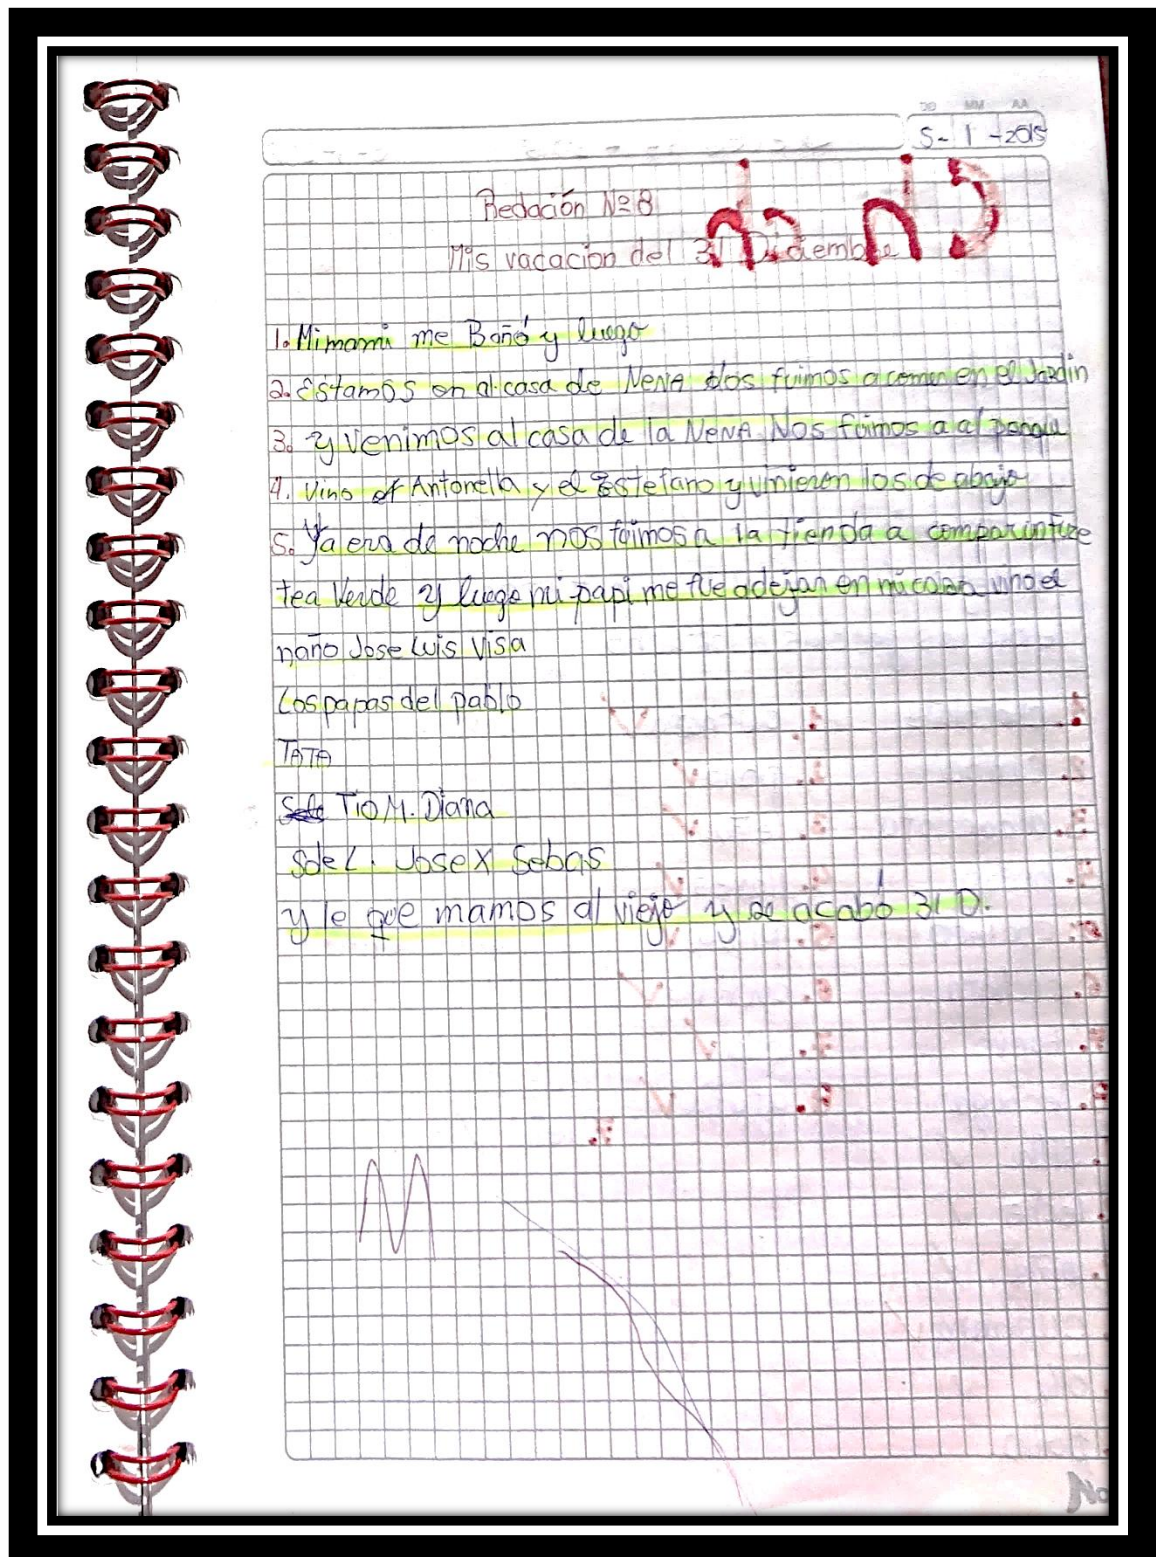 DD MM AA
5- 1 -2015
Redación Nº 8
Mis vacacion del 31 Diciembre
1. Mi mami me Bañó y luego
2. Estamos en al casa de NeNA Nos fuimos a comer en el Jardin
3. y venimos al casa de la NeNA Nos fuimos a al
4. Vino el Antonella y el Estefano y vinieron los de abajo
5. Ya era de noche nos fuimos a la tienda a
tea Verde y luego mi papi me fue a dejar en mi vino el
naño Jose Luis Visa
Los papas del pablo
TATA
Tio M. Diana
Sole L. Jose X Sebas
y le que mamos al viejo y se acabó 31 D.
No